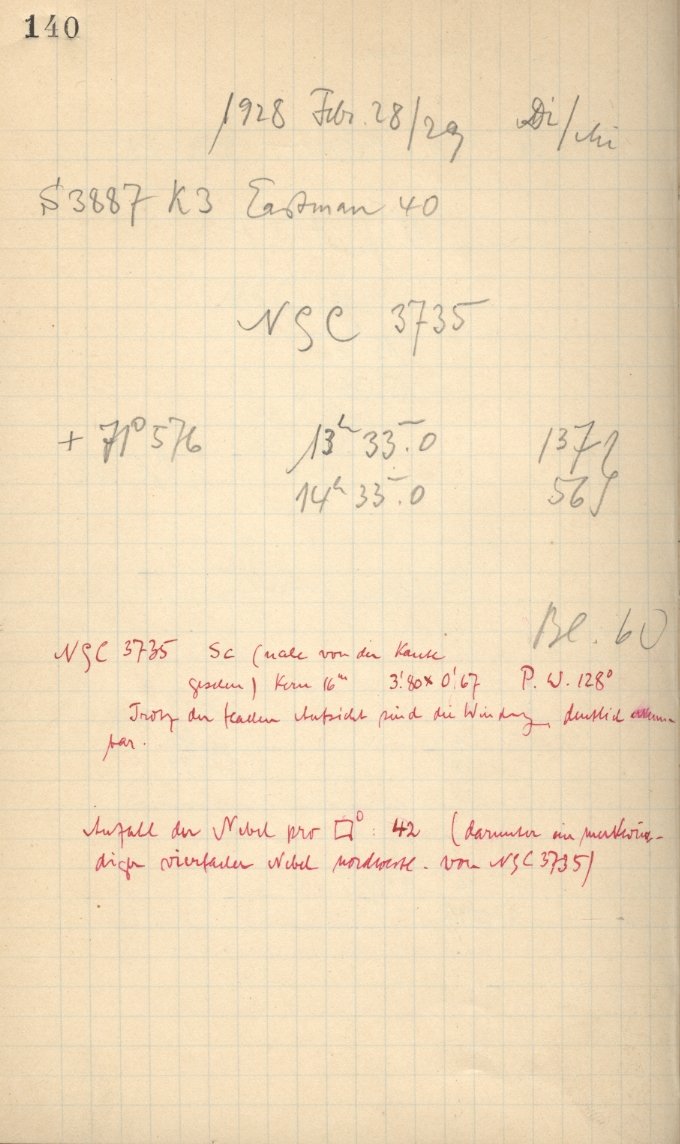 140
1928 Febr. 28/29 Di/Mi
S 3887 K3 Eastman 40
NGC 3735
+ 71° 576 13h 33.0 137
14h 33.0 56
Bl. 60
NGC 3735 Sc (nahe von der Kante
gesehen) Kern 16m 3!80 × 0!67 P. W. 128°
Trotz der flachen Aufsicht sind die Windung. deutlich erkenn-
bar.
Anzahl der Nebel pro □° : 42 (darunter ein merkwür-
diger vierfacher Nebel nordwestl. von NGC 3735)